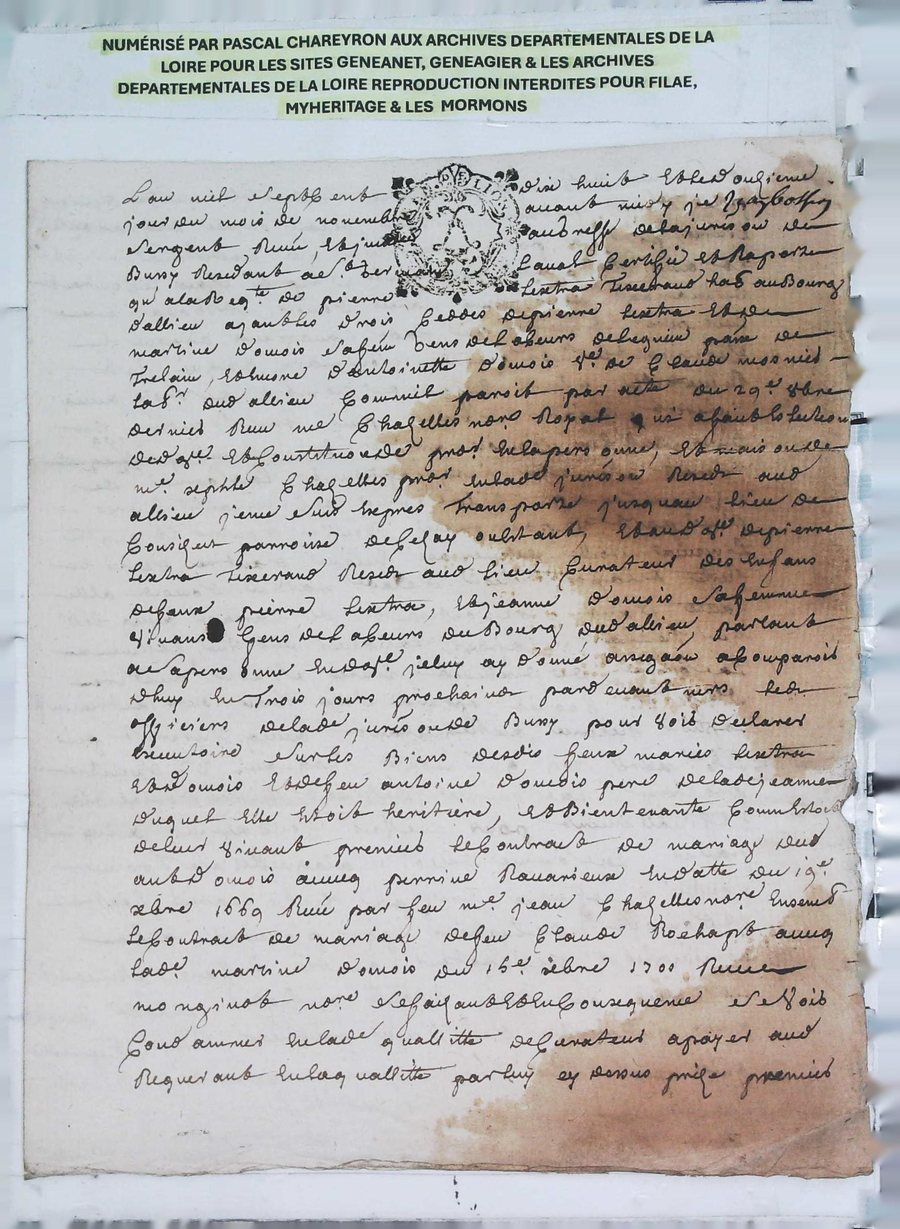 NUMÉRISÉ PAR PASCAL CHAREYRON AUX ARCHIVES DEPARTEMENTALES DE LA
LOIRE POUR LES SITES GENEANET, GENEAGIER & LES ARCHIVES
DEPARTEMENTALES DE LA LOIRE REPRODUCTION INTERDITES POUR FILAE,
MYHERITAGE & LES MORMONS
Lan mil sept cent dix huit et le douzieme
jour du mois de novembre avant midy je
sergent Royal de la jurison de
Bussy Residant a St Germain Laval Certiffie et Raporte
qu a la Reqte de pierre Lextra Tisserand habt au Bourg
dallieu ayant les droits ceddes de pierre Lextra et de
martine Donois sa fem gens de labeurs de parse de
Trelain, et encore d'antoinette Donois ve de Claude mosnier
labr dud allieu Comme il paroit par acte du 29e 8bre
dernier Receu me Chazelles nore Royal qui a fait Election
de et Constitution de procr en la personne, et maison de
me Chazelles procr en lad jurison Residt aud
allieu je me suis Expres Transporte jusquau lieu de
Corsigeut parroisse de Cezay ou Estant, et aud de pierre
Lextra Tisserand Residt aud lieu Curateur des Enfans
de feux pierre Lextra, et jeanne Donois sa femme
vivans gens de labeurs du Bourg dud allieu parlant
a sa personne en dt je luy ay donné assignaon a Comparoir
dhuy en Trois jours prochains pardevant mrs les
officiers de lade jurison de Bussy pour voir declarer
Executoire sur les Biens desdts feux mariés Lextra
et donois et de feu antoine Donois pere de lad jeanne
duquel Elle Etoit heritiere, et Bientenante Comm Estoit
de leur vivant premier le Contract de mariage dud
ant donois avecq perrine Ravarieux en datte du 19e
xbre 1669 Receu par feu me jean Chazelles nore Ensemb
le Contract de mariage de feu Claude Rochapt avecq
lade martine Donois du 16e 1700 Receu
monginot nore Ce faisant et en Consequence se voir
Condamner en lade quallitte de Curateur a payer aud
Requerant en la quallitte par luy cy dessus prize premier